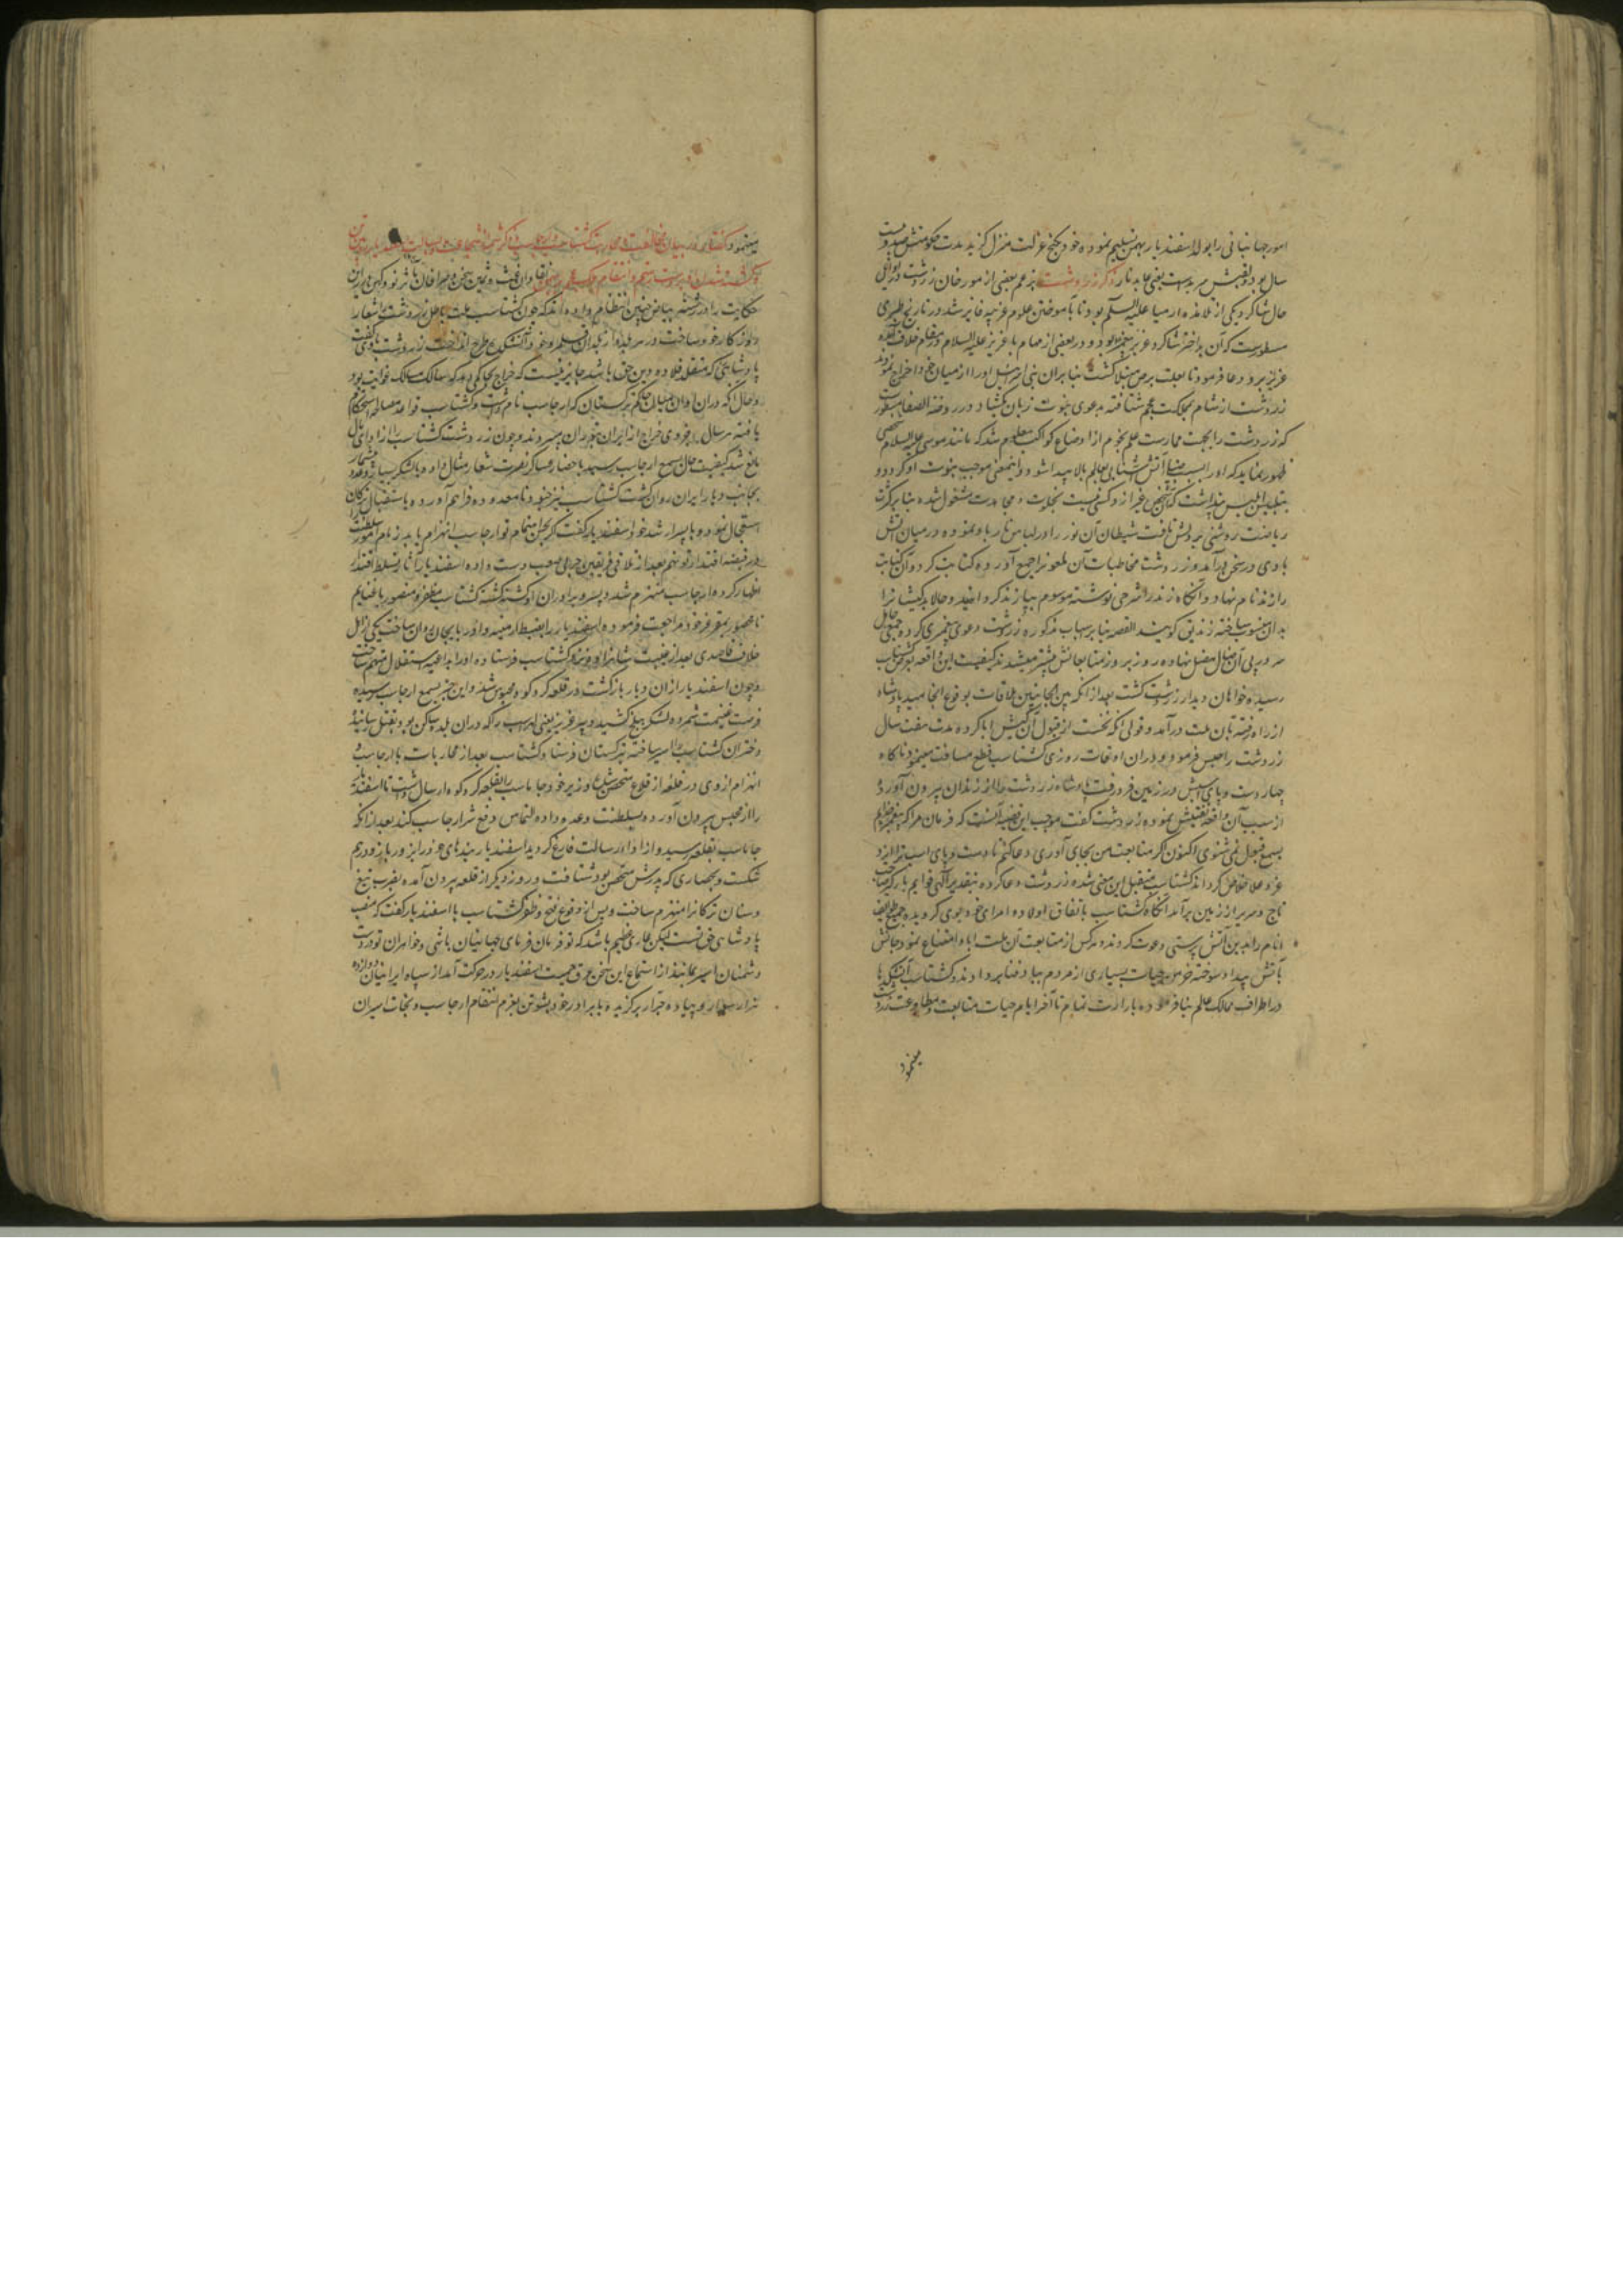 امور جهانبانی را بولد اسفندیار بهمن تسلیم نموده خود بکنج عزلت منزل گزید مدت حکومتش صد و بیست
سال بود و لقبش هربد ست یعنی عابد نار ذکر زردشت بزعم بعضی از مورخان زردشت در اوایل
حال شاگرد یکی از تلامذه ارمیا علیه السلام بود تا بآموختن علوم غریبه فایز شد و در تاریخ طبری
مسطورست که آن بداختر شاگرد عزیر پیغمبر بود و در بعضی از مهام با عزیر علیه السلام در مقام خلاف آمده
عزیر برو دعا فرمود تا بعلت برص مبتلا گشت بنا بران بنی اسرائیل او را از میان خود اخراج نمودند
زردشت از شام بمملکت عجم شتافته بدعوی نبوت زبان بگشاد و در روضة الصفا مسطورست
که زردشت را بجهت ممارست علم نجوم از اوضاع کواکب معلوم شد که مانند موسی علیه السلام شخصی
ظهور نماید که او را بسبب ضیاء آتش اشتعالی بعالم بالا پیدا شود و اینمعنی موجب نبوت او گردد و
بتلبیس ابلیس پنداشت که آن شخص غیر ازو کسی نیست بخلوت و مجاهدت مشغول شده بنا بر کثرت
ریاضت روشنی بر دلش تافت شیطان آن نور را در لباس نار باو نموده در میان آتش
با وی در سخن درآمد و زردشت مخاطبات آن ملعونرا جمع آورده کتابت کرد و آن کتابت
را زند نام نهاد و آنگاه زند را شرحی نوشته موسوم بپازند گردانید و حالا بدکیشانرا
بدان منسوب ساخته زندیق گویند القصه بنا بر اسباب مذکوره زردشت دعوی پیغمبری کرده جمعی جاهل
سر در پی آن ضال مضل نهاده روز بروز متابعانش بیشتر میشدند کیفیت این واقعه بگوش گشتاسب
رسیده خواهان دیدار زردشت گشت بعد از آنکه بین الجانبین ملاقات بوقوع انجامید پادشاه
از راه رفته بان ملت درآمد و قولی آنکه نخست از قبول آن کیش ابا کرده مدت هفت سال
زردشت را حبس فرمود و دران اوقات روزی گشتاسب قطع مسافت مینمود ناگاه
چهار دست و پای اسپش در زمین فرو رفت پادشاه زردشت را از زندان بیرون آورده
از سبب آن واقعه تفتیش نموده زردشت گفت موجب این قضیه آنست که فرمان مرا که پیغمبر خدایم
بسمع قبول نمی شنوی اکنون اگر متابعت من بجای آوری دعا کنم تا دست و پای اسب ترا ایزد
عز و علا خلاص گرداند گشتاسب متقبل این معنی شده زردشت دعا کرده بتقدیر الهی قوایم بارگیر صاحب
تاج و سریر از زمین برآمد آنگاه گشتاسب باتفاق اولاد و امرای خود بوی گرویده جمیع طوایف
انام را بدین آتش پرستی دعوت کردند و هر کس از متابعت آن ملت ابا و امتناع نمود جانش
بآتش بیداد سوخته خرمن حیات بسیاری از مردم بباد فنا بر دادند و گشتاسب آتشکدها
در اطراف ممالک عالم بنا فرموده بارادت تمام تا آخر ایام حیات متابعت و مطاوعت زردشت
مینمود
مینمود گفتار در بیان مخالفت و محاربت گشتاسب و ارجاسب و ذکر شمه از شجاعت و بسالت اسفندیار رویین تن
حکایت را در رشته بیان چنین انتظام داده اند که چون گشتاسب ملت باطل زردشت را شعار
روزگار خود ساخت و در هر بلده از بلدان قلمرو خود آتشکده طرح انداخت زردشت با وی گفت
پادشاهی که متقلد قلاده دین حق باشد جایز نیست که خراج بحاکمی دهد که سالک مسالک غوایت بود
و حال آنکه دران اوان میان حاکم ترکستان که ارجاسب نام داشت و گشتاسب قواعد مصالحه استحکام
یافته هر سال خروی خراج از ایران بتوران میبردند و چون زردشت گشتاسب را از ادای مال
مانع شد کیفیت حال بسمع ارجاسب رسید باحضار عساکر نصرت شعار مثال داد و با لشکر بسیار و عدد بیشمار
بجانب دیار ایران روان گشت گشتاسب نیز جنود نامعدوده فراهم آورده باستقبال ترکان
استعجال نمود و با پسر ارشد خود اسفندیار گفت که اگر بحسن اهتمام تو ارجاسب انهزام یابد زمام امور سلطنت
در قبضه اقتدار تو نهم بعد از تلاقی فریقین حربی صعب دست داده اسفندیار آثار تسلط و اقتدار
اظهار کرد و ارجاسب منهزم شد و پسر و برادران او کشته گشته گشتاسب مظفر و منصور با غنایم
نامحصور بمقر عز خود مراجعت فرموده اسفندیار را بضبط ارمنیه و آذربایجان روان ساخت یکی از اهل
خلاف قاصدی بعد از غیبت شاهزاده نزد گشتاسب فرستاده او را بداعیه استقلال متهم ساخت
و چون اسفندیار ازان دیار بازگشت در قلعه گردکوه محبوس شد و این خبر بسمع ارجاسب رسیده
فرصت غنیمت شمرده لشکر ببلخ کشید و پدر عزیز یعنی لهراسب را که دران بلده ساکن بود بقتل رسانیده
دختران گشتاسب را اسیر ساخته بترکستان فرستاد و گشتاسب بعد از محاربات با ارجاسب و
انهزام از وی در قلعه از قلاع متحصن شد و وزیر خود جاماسب را بقلعه گردکوه ارسال داشت تا اسفندیار
را از محبس بیرون آورده و بسلطنت وعده داده التماس دفع شر ارجاسب کند بعد از آنکه
جاماسب بقلعه رسید و از اداء رسالت فارغ گردید اسفندیار بندهای خود را بزور بازو درهم
شکست و بحصاری که پدرش متحصن بود شتافت و روز دیگر از قلعه بیرون آمده بضرب تیغ
و سنان ترکانرا منهزم ساخت و پس از وقوع فتح و ظفر گشتاسب با اسفندیار گفت که منصب
پادشاهی حق تست لیکن عاری عظیم باشد که تو فرمان فرمای جهانیان باشی و خواهران تو در دست
دشمنان اسیر بمانند از استماع این سخن عرق حمیت اسفندیار در حرکت آمد از سپاه ایرانیان دوازده
هزار سوار و پیاده جرار برگزیده با برادر خود بشوتن بعزم انتقام ارجاسب و نجات اسیران